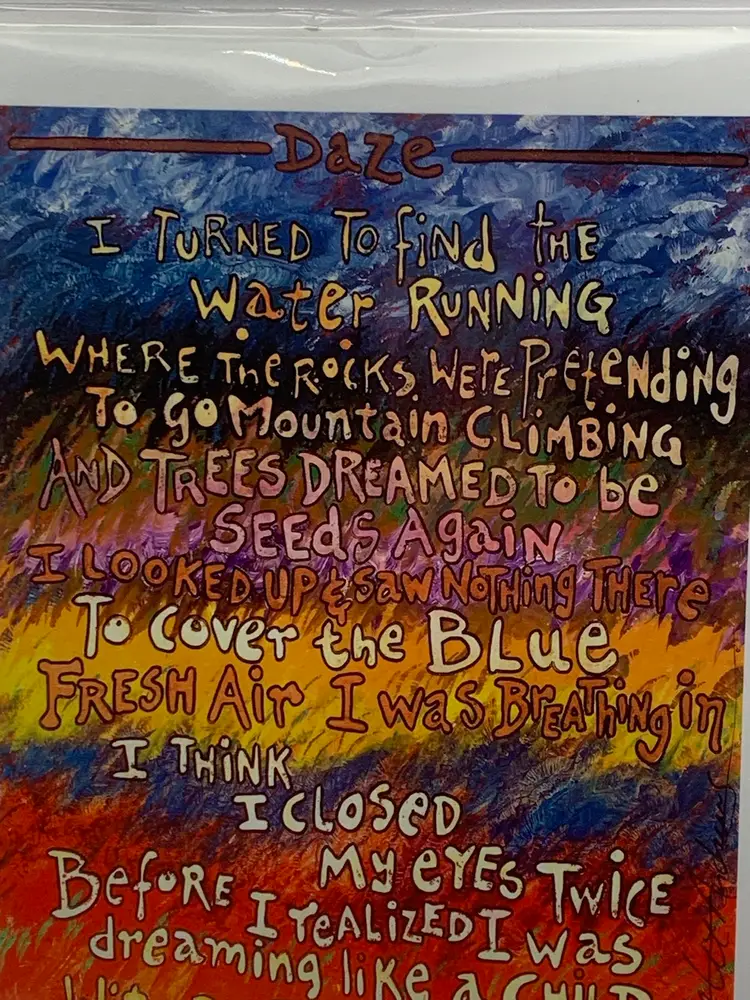 Daze
I TURNED TO find THE
Water RUNNING
WHERE THe ROCKS WERE PretENDING
To go Mountain CLIMBING
AND TREES DREAMED To be
SEEdS Again
I LOOKED UP & SAW NOTHING THERE
To Cover the BLue
FRESH Air I was BREATHing in
I THINK
I CLOSED
My eYES TWICE
BefORE I reALIZED I was
dreaming like a CHILD